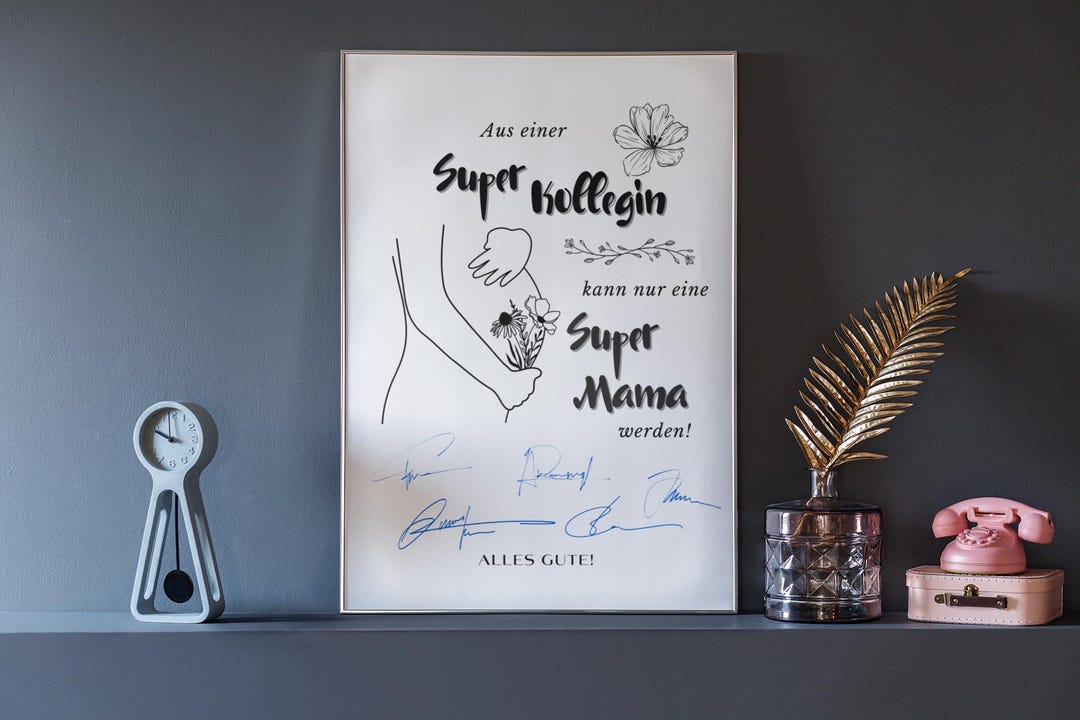 Aus einer
Super Kollegin
kann nur eine
Super
Mama
werden!
ALLES GUTE!